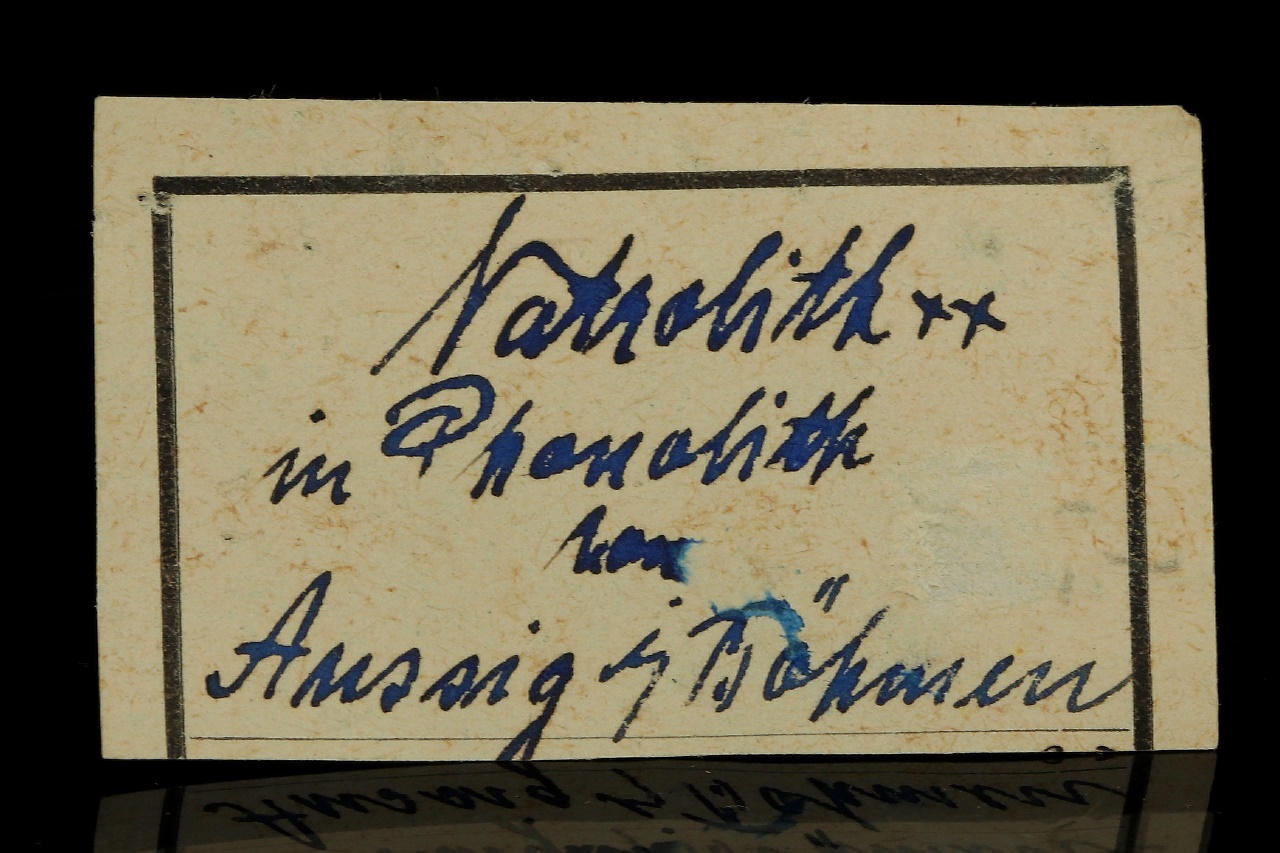 Natrolith xx
in Phonolith
von
Aussig i/ Böhmen